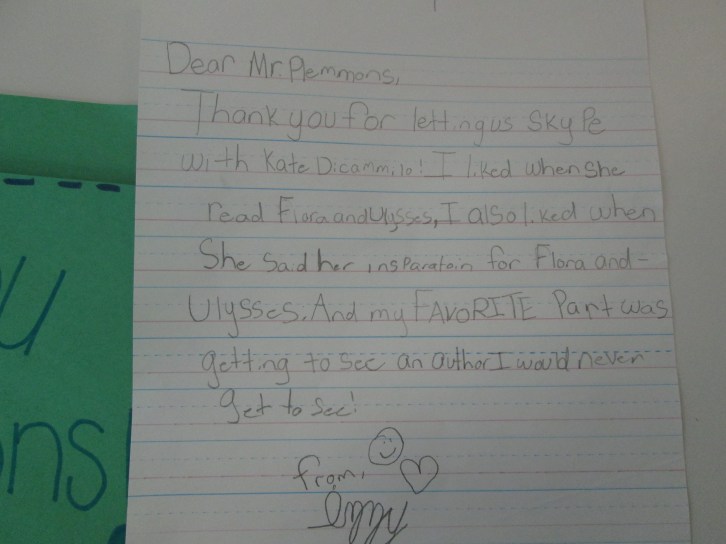 Dear Mr. Plemmons,
Thank you for letting us SKyPe
with Kate Dicammilo! I liked when She
read Flora and Ulysses, I also liked when
She Sad her insparatoin for Flora and-
Ulysses. And my FAVORITE Part was
getting to see an author I would never
get to see!
from,
U
ons